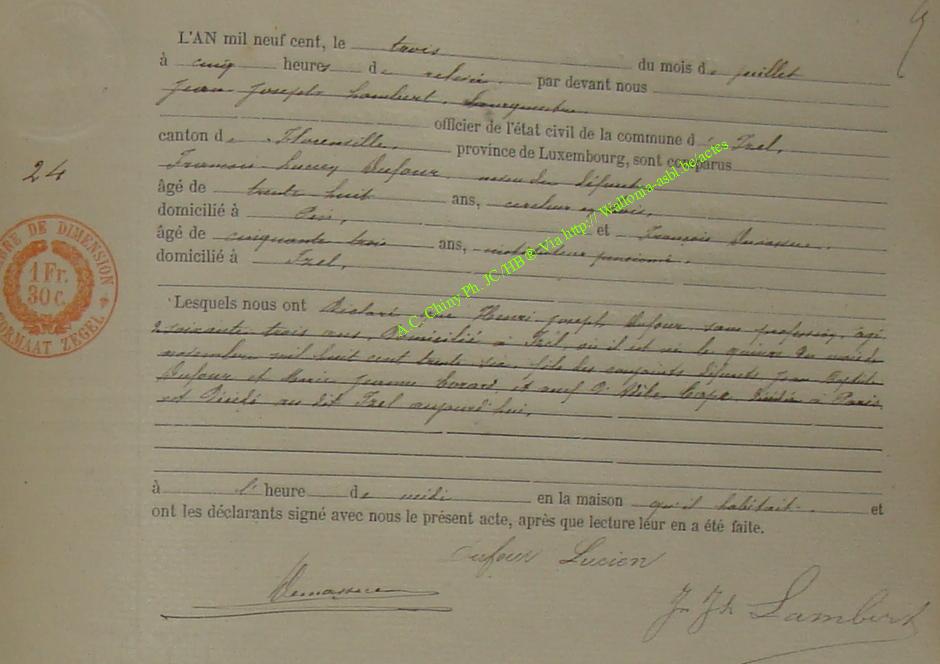 L'AN mil neuf cent, le trois du mois de juillet
à cinq heures de relevée par devant nous
Jean Joseph Lambert, Bourgmestre
officier de l'état civil de la commune d' Izel,
canton de Florenville, province de Luxembourg, sont comparus
24
Dufour neveu du défunt
âgé de trente huit ans, en bois,
domicilié à Pin, et François
âgé de cinquante trois ans, instituteur pensionné.
domicilié à Izel,
TIMBRE DE DIMENSION
1 Fr.
30 C.
FORMAAT ZEGEL
Lesquels nous ont Déclaré que Henri Joseph Dufour, sans profession, âgé
de soixante trois ans, Domicilié à Izel où il est né le quinze du mois de
novembre mil huit cent trente six, fils des conjoints défunts Jean
Dufour et Marie Jeanne et veuf D à Paris
est Décédé au dit Izel aujourd'hui,
à l' heure de midi en la maison qu'il habitait et
ont les déclarants signé avec nous le présent acte, après que lecture leur en a été faite.
Dufour Lucien
Jn Jh Lambert
A.C. Chiny Ph. JC/HB® Via http:// Wallonia-asbl.be/actes